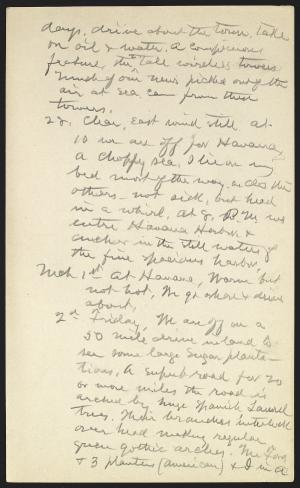 days, drive about the town, take
on oil & water. A conspicuous
feature, the tall wireless towers
Much of our news picked out of the
air at sea came from these
towers.
28. Clear, East wind still at
10 we are off for Havana,
a choppy sea, I lie on my
bed most of the way, as do the
others - not sick, but head
in a whirl, at 8, P.M. we
enter Havana Harbor &
anchor in the still waters of
the fine spacious harbor,
Mch 1st At Havana, Warm but
not hot, We go ashore & drive
about,
2d Friday, We are off on a
50 mile drive inland to
see some large sugar planta-
tions, A superb road for 20
or more miles the road is
arched by huge Spanish Laurel
trees. Their branches interlock
over head making regular
green gothic arches. Mr Ford
& 3 planters (american) & I in a